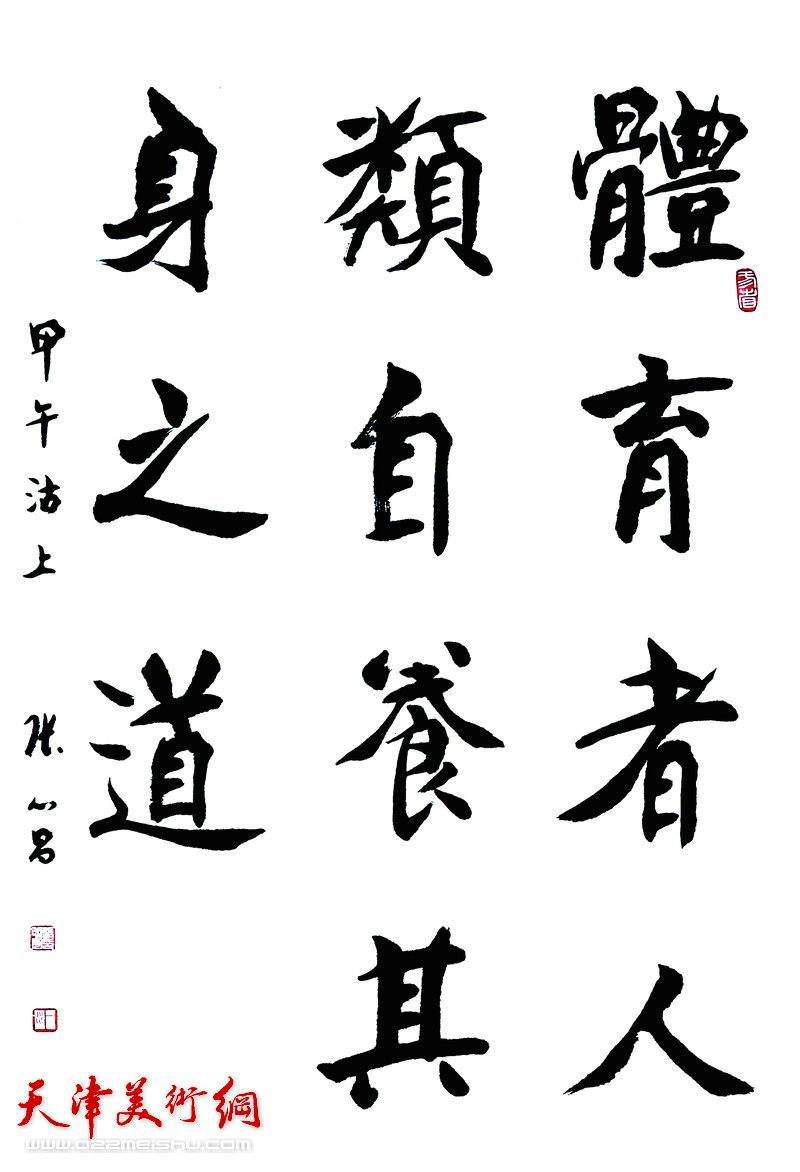 體育者人
類自養其
身之道
甲午沽上
張
天津美術網
www.022meishu.com